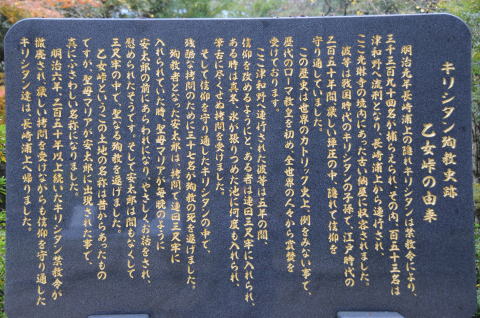 キリシタン殉教史跡
乙女峠の由来
明治元年、長崎浦上の隠れキリシタンは禁教令により、
三千三百九十四名が捕らえられ、その内、百五十三名は
津和野へ流罪となり、長崎浦上から連行され、
ここ光琳寺の境内にあった古い納屋に収容されました。
彼等は戦国時代のキリシタンの子孫で、江戸時代の
二百五十年間、厳しい弾圧の中、隠れて信仰を
守り通していました。
この歴史は世界のカトリック史上、例をみない事で、
歴代のローマ教皇を初め、全世界の人々から賞賛を
受けております。
ここ津和野へ連行された彼等は五年の間
信仰を改めるようにと、ある者は一連回三尺牢に入れられ、
ある時は真冬、氷が張りつめた池に何度も入れられ、
筆舌に尽くせぬ拷問を受けました。
そして信仰を守り通したキリシタンの中で、
残酷な拷問のために三十七名が殉教の死を遂げました。
殉教者となった安太郎は、拷問で一連回三尺牢に
入れられていた時、聖母マリアが毎晩のように
安太郎の前にあらわれになり、やさしくお話をされ、
慰められたそうです。そして、安太郎は間もなくして
三尺牢の中で、聖なる殉教を遂げました。
乙女峠というこの土地の名称は昔からあったもの
ですが、聖母マリアが安太郎に出現された事で、
真にふさわしい名称になりました。
明治六年、二百五十年以上続いたキリシタン禁教令が
撤廃され、厳しい拷問を受けながらも信仰を守り通した
キリシタン達は、長崎浦上へ帰りました。